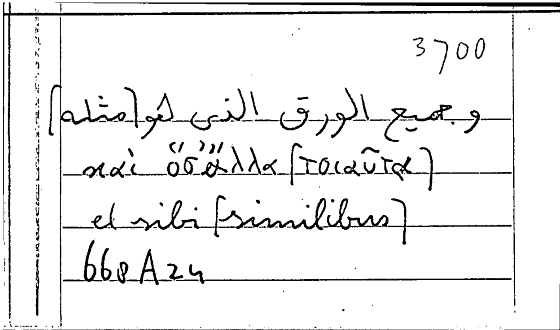 3700
وجميع الورق الذى هو [مثله]
καὶ ὅσ' ἄλλα [τοιαῦτα]
et sibi [similibus]
668 A 24